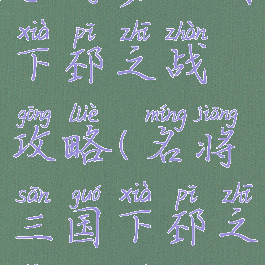 xià pī zhī zhàn
下邳之战
gōng lüè míng jiāng
攻略(名将
sān guó xià pī zhī
三国下邳之